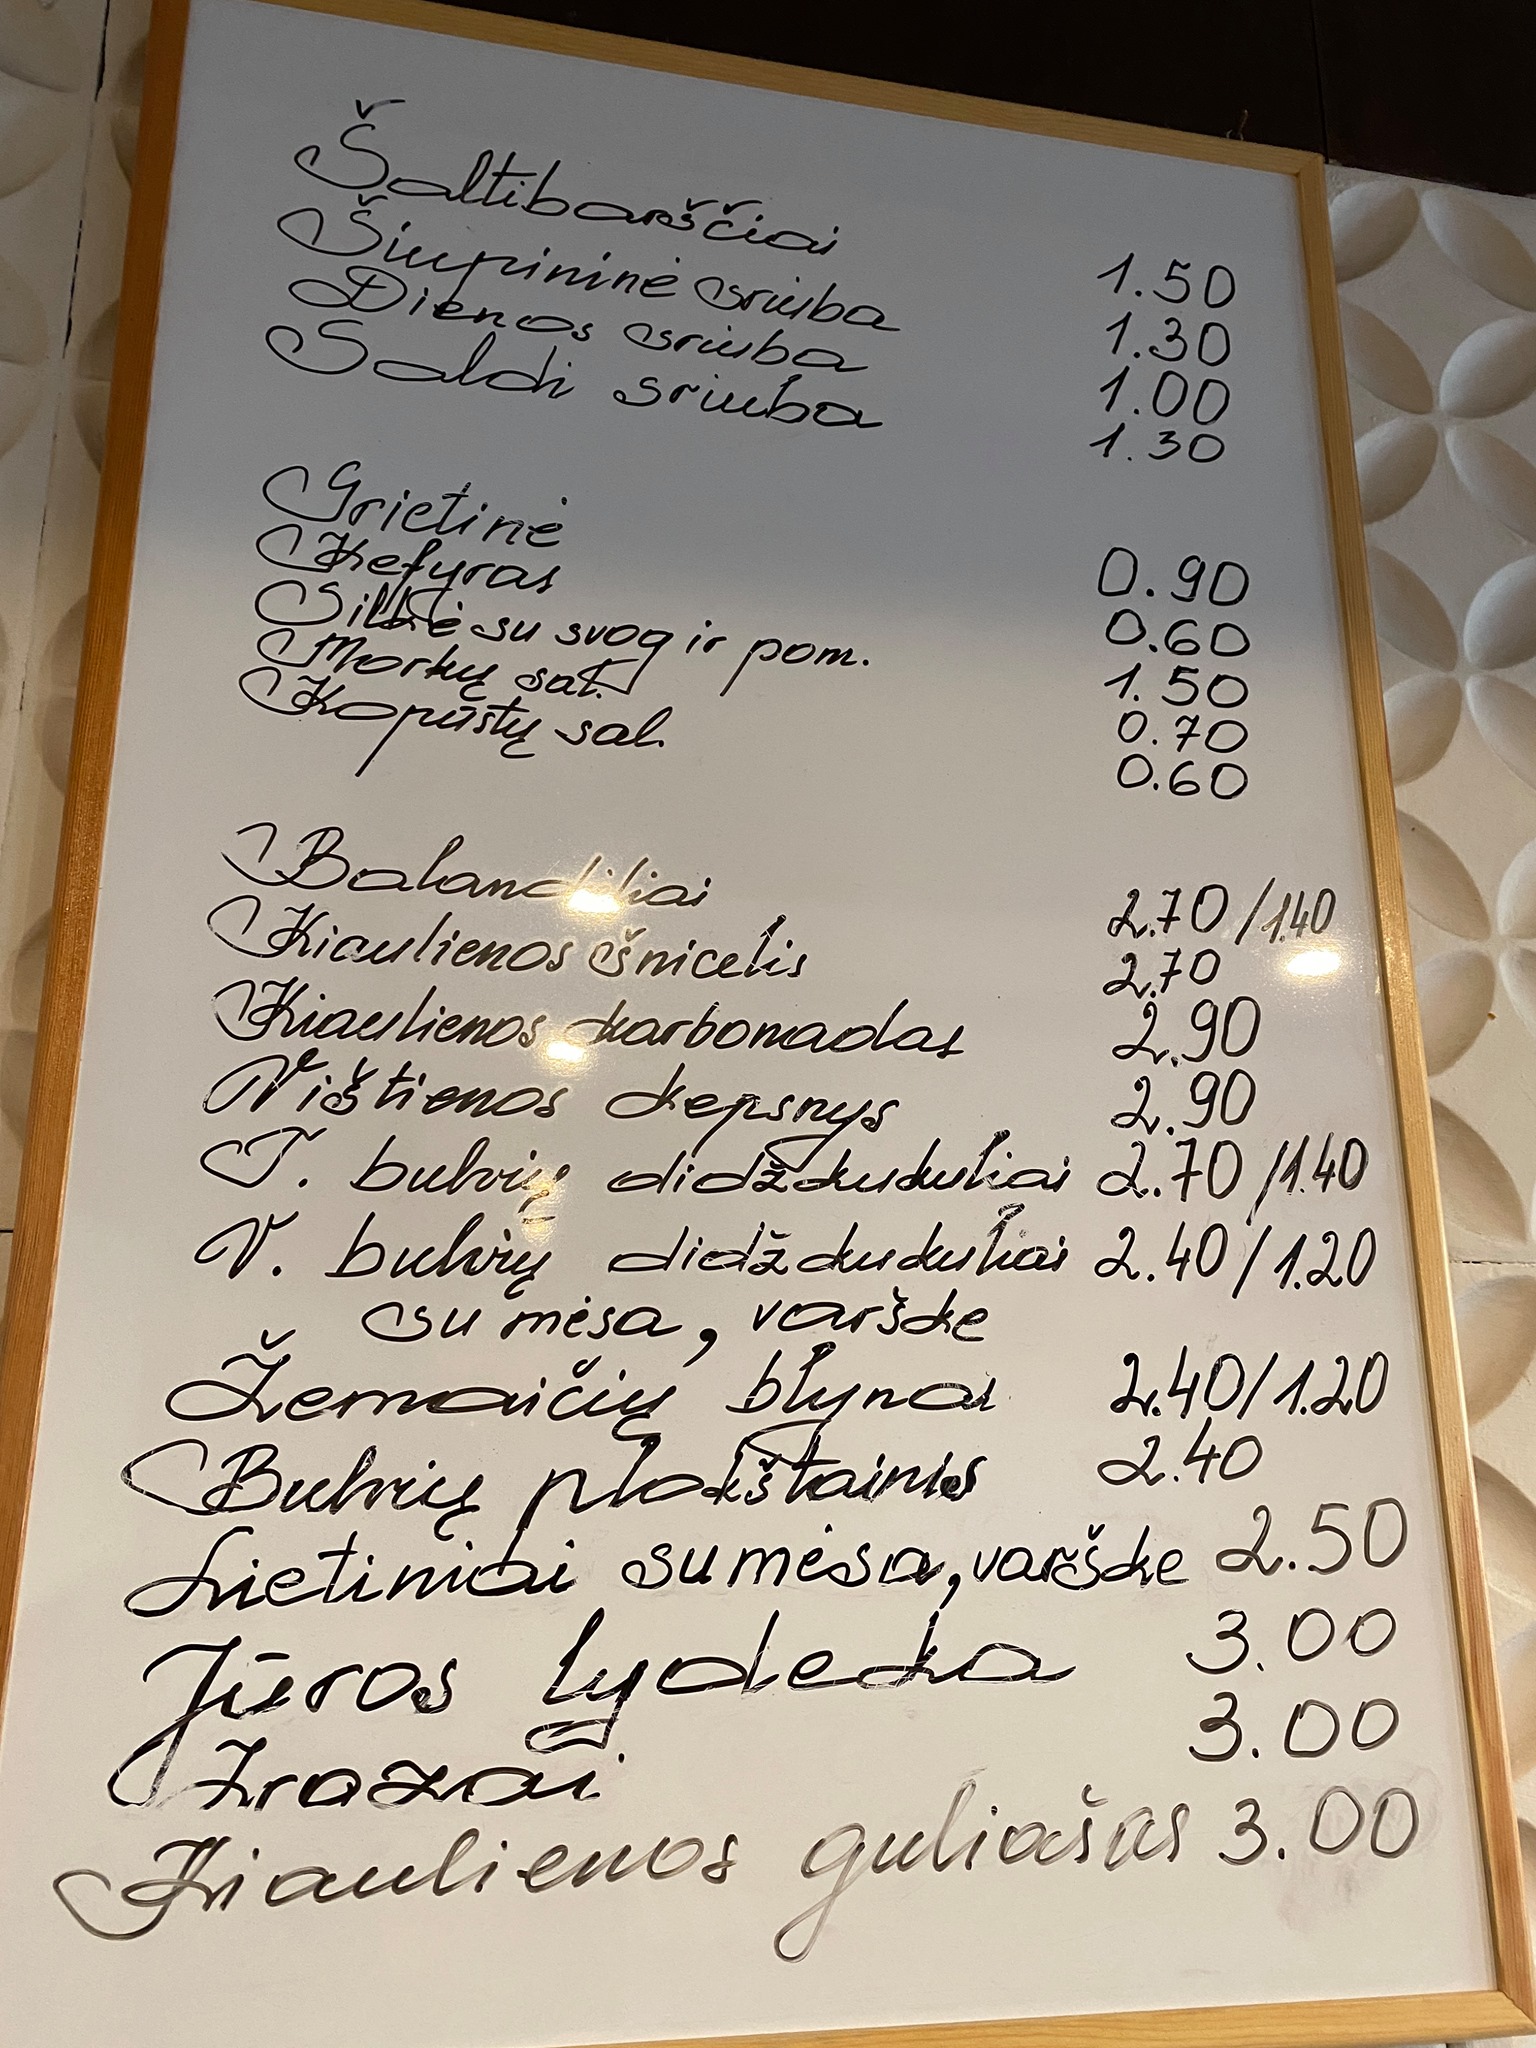 Šaltibarščiai 1.50
Šiupininė sriuba 1.30
Dienos sriuba 1.00
Saldi sriuba 1.30
Grietinė 0.90
Kefyras 0.60
Silkė su svog ir pom. 1.50
Morkų sal. 0.70
Kopūstų sal. 0.60
Balandėliai 2.70/1.40
Kiaulienos šnicelis 2.70
Kiaulienos karbonadas 2.90
Vištienos kepsnys 2.90
T. bulvių didžkukuliai 2.70/1.40
V. bulvių didžkukuliai 2.40/1.20
su mėsa, varške
Žemaičių blynas 2.40/1.20
Bulvių plokštainis 2.40
Lietiniai su mėsa, varške 2.50
Jūros lydeka 3.00
Zrazai 3.00
Kiaulienos guliašas 3.00